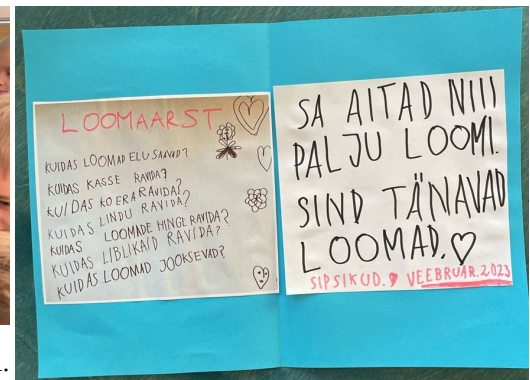 LOOMAARST
KUIDAS LOOMAD ELU SAAVAD?
KUIDAS KASSE RAVIDA?
KUIDAS KOERA RAVIDA?
KUIDAS LINDU RAVIDA?
KUIDAS LOOMADE HINGE RAVIDA?
KUIDAS LIBLIKAID RAVIDA?
KUIDAS LOOMAD JOOKSEVAD?
SA AITAD NIII
PALJU LOOMI.
SIND TÄNAVAD
LOOMAD.♡
SIPSIKUD. VEEBRUAR.2023